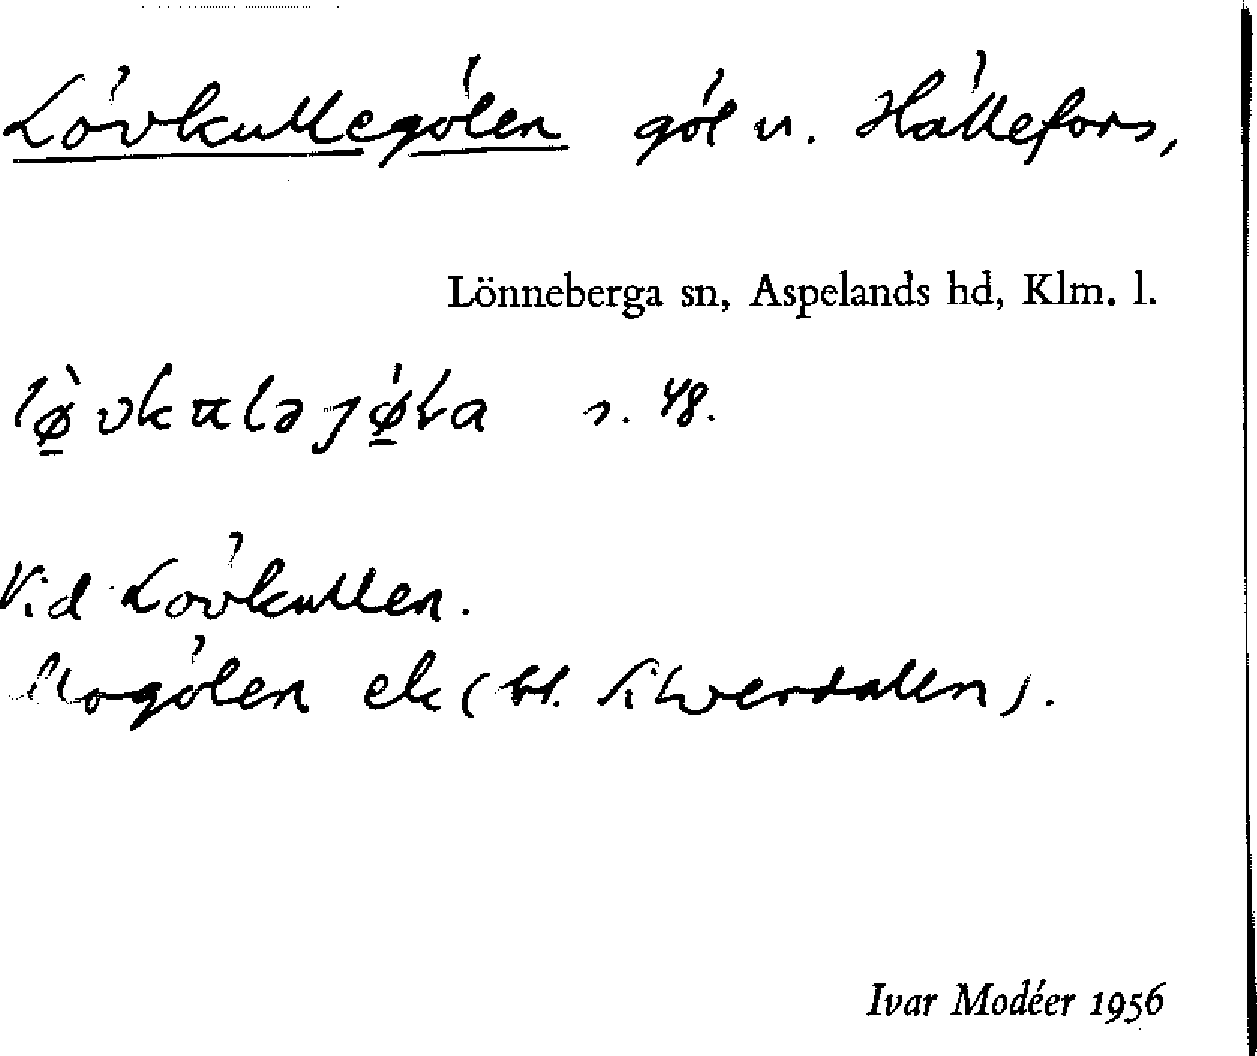 Lövkullegölen göl n. Hällefors,
Lönneberga sn, Aspelands hd, Klm. l.
lø̠̀vkuləjǿ̠La s. 48.
Vid Lövkullen.
Mogölen ek (bl. Silverdalen).
Ivar Modéer 1956